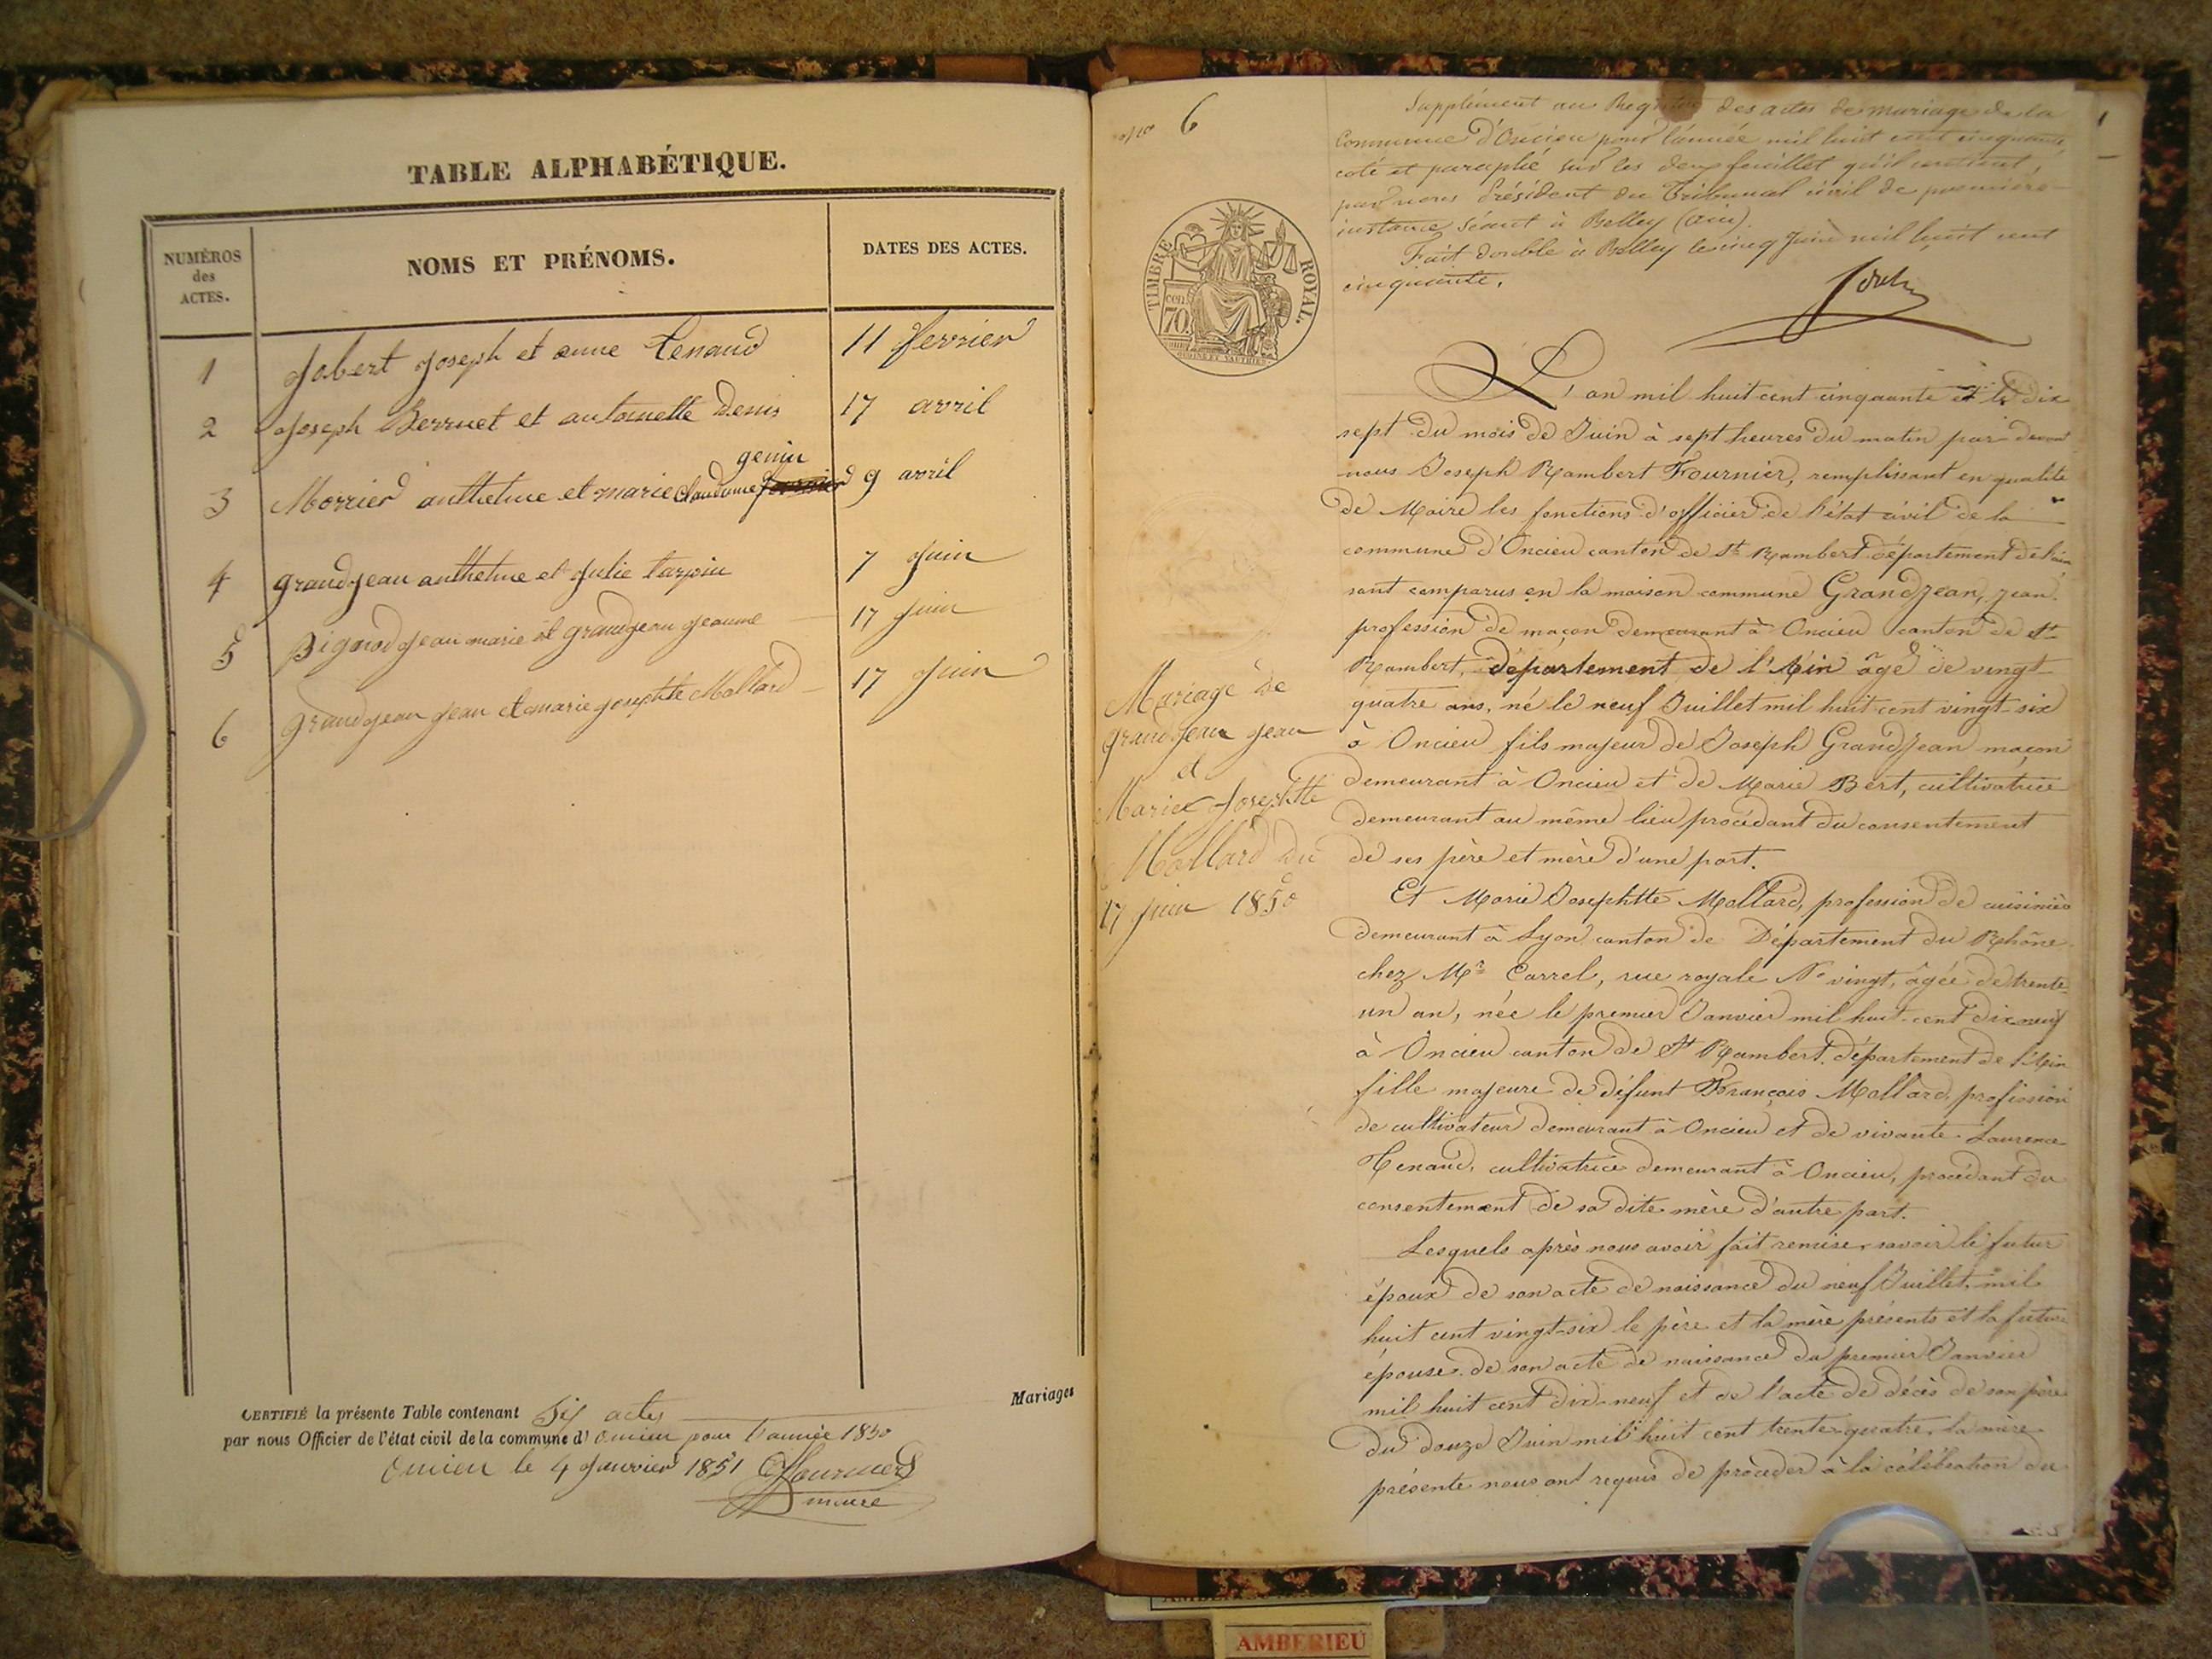 TABLE ALPHABÉTIQUE.
NUMÉROS
des
ACTES.
NOMS ET PRÉNOMS.
DATES DES ACTES.
1 Jobert Joseph et anne Tenand 11 fevrier
2 Joseph Berruet et antoinette Denis 17 avril
genin
3 Morrier anthelme et marie claudine 9 avril
4 grandjean anthelme et Julie tarpin 7 Juin
5 Pignod jean marie et grandjean jeanne 17 juin
6 grandjean jean et marie josephtte Mollard 17 Juin
CERTIFIÉ la présente Table contenant Six actes
par nous Officier de l'état civil de la commune d' Oncieu pour l'année 1850
Oncieu le 4 Janvier 1851 Fournier
maire
Mariages
6
TIMBRE ROYAL.
cen.
70
Mariage de
grandjean jean
et
Marie Josephtte
Mollard du
17 juin 1850
1
Supplément au Registre des actes de mariage de la
commune d'Oncieu pour l'année mil huit cent cinquante,
coté et paraphé sur les deux feuillet qu'il contient,
par nous Président du Tribunal civil de première
instance séant à Belley (Ain)
Fait double à Belley le cinq Juin mil huit cent
cinquante.
L'an mil huit cent cinquante et le dix
sept du mois de Juin à sept heures du matin par devant
nous Joseph Rambert Fournier, remplissant en qualité
de Maire les fonctions d'officier de l'état civil de la
commune d'Oncieu canton de St Rambert département de l'ain
sont comparus en la maison commune Grandjean, Jean.
profession de maçon demeurant à Oncieu canton de St
Rambert, département de l'Ain âgé de vingt
quatre ans, né le neuf Juillet mil huit cent vingt-six
à Oncieu fils majeur de Joseph Grandjean maçon
demeurant à Oncieu et de Marie Bert, cultivatrice
demeurant au même lieu procédant du consentement
de ses père et mère d'une part.
Et Marie Josephtte Mollard, profession de cuisinière
demeurant à Lyon canton de Département du Rhône
chez Mr Carrel, rue royale No vingt, âgée de trente-
un an, née le premier Janvier mil huit-cent dix neuf
à Oncieu canton de St Rambert. département de l'Ain
fille majeure de défunt François Mollard, profession
de cultivateur demeurant à Oncieu et de vivante Laurence
Tenand, cultivatrice demeurant à Oncieu, procédant du
consentement de sa dite mère d'autre part.
Lesquels après nous avoir fait remise, savoir le futur
époux de son acte de naissance du neuf Juillet, mil
huit cent vingt-six le père et la mère présents et la future
épouse de son acte de naissance du premier Janvier
mil huit cent dix-neuf et de l'acte de décès de son père
du douze Juin mil huit cent trente-quatre, la mère
présente nous ont requis de procéder à la célébration du
AMBERIEU